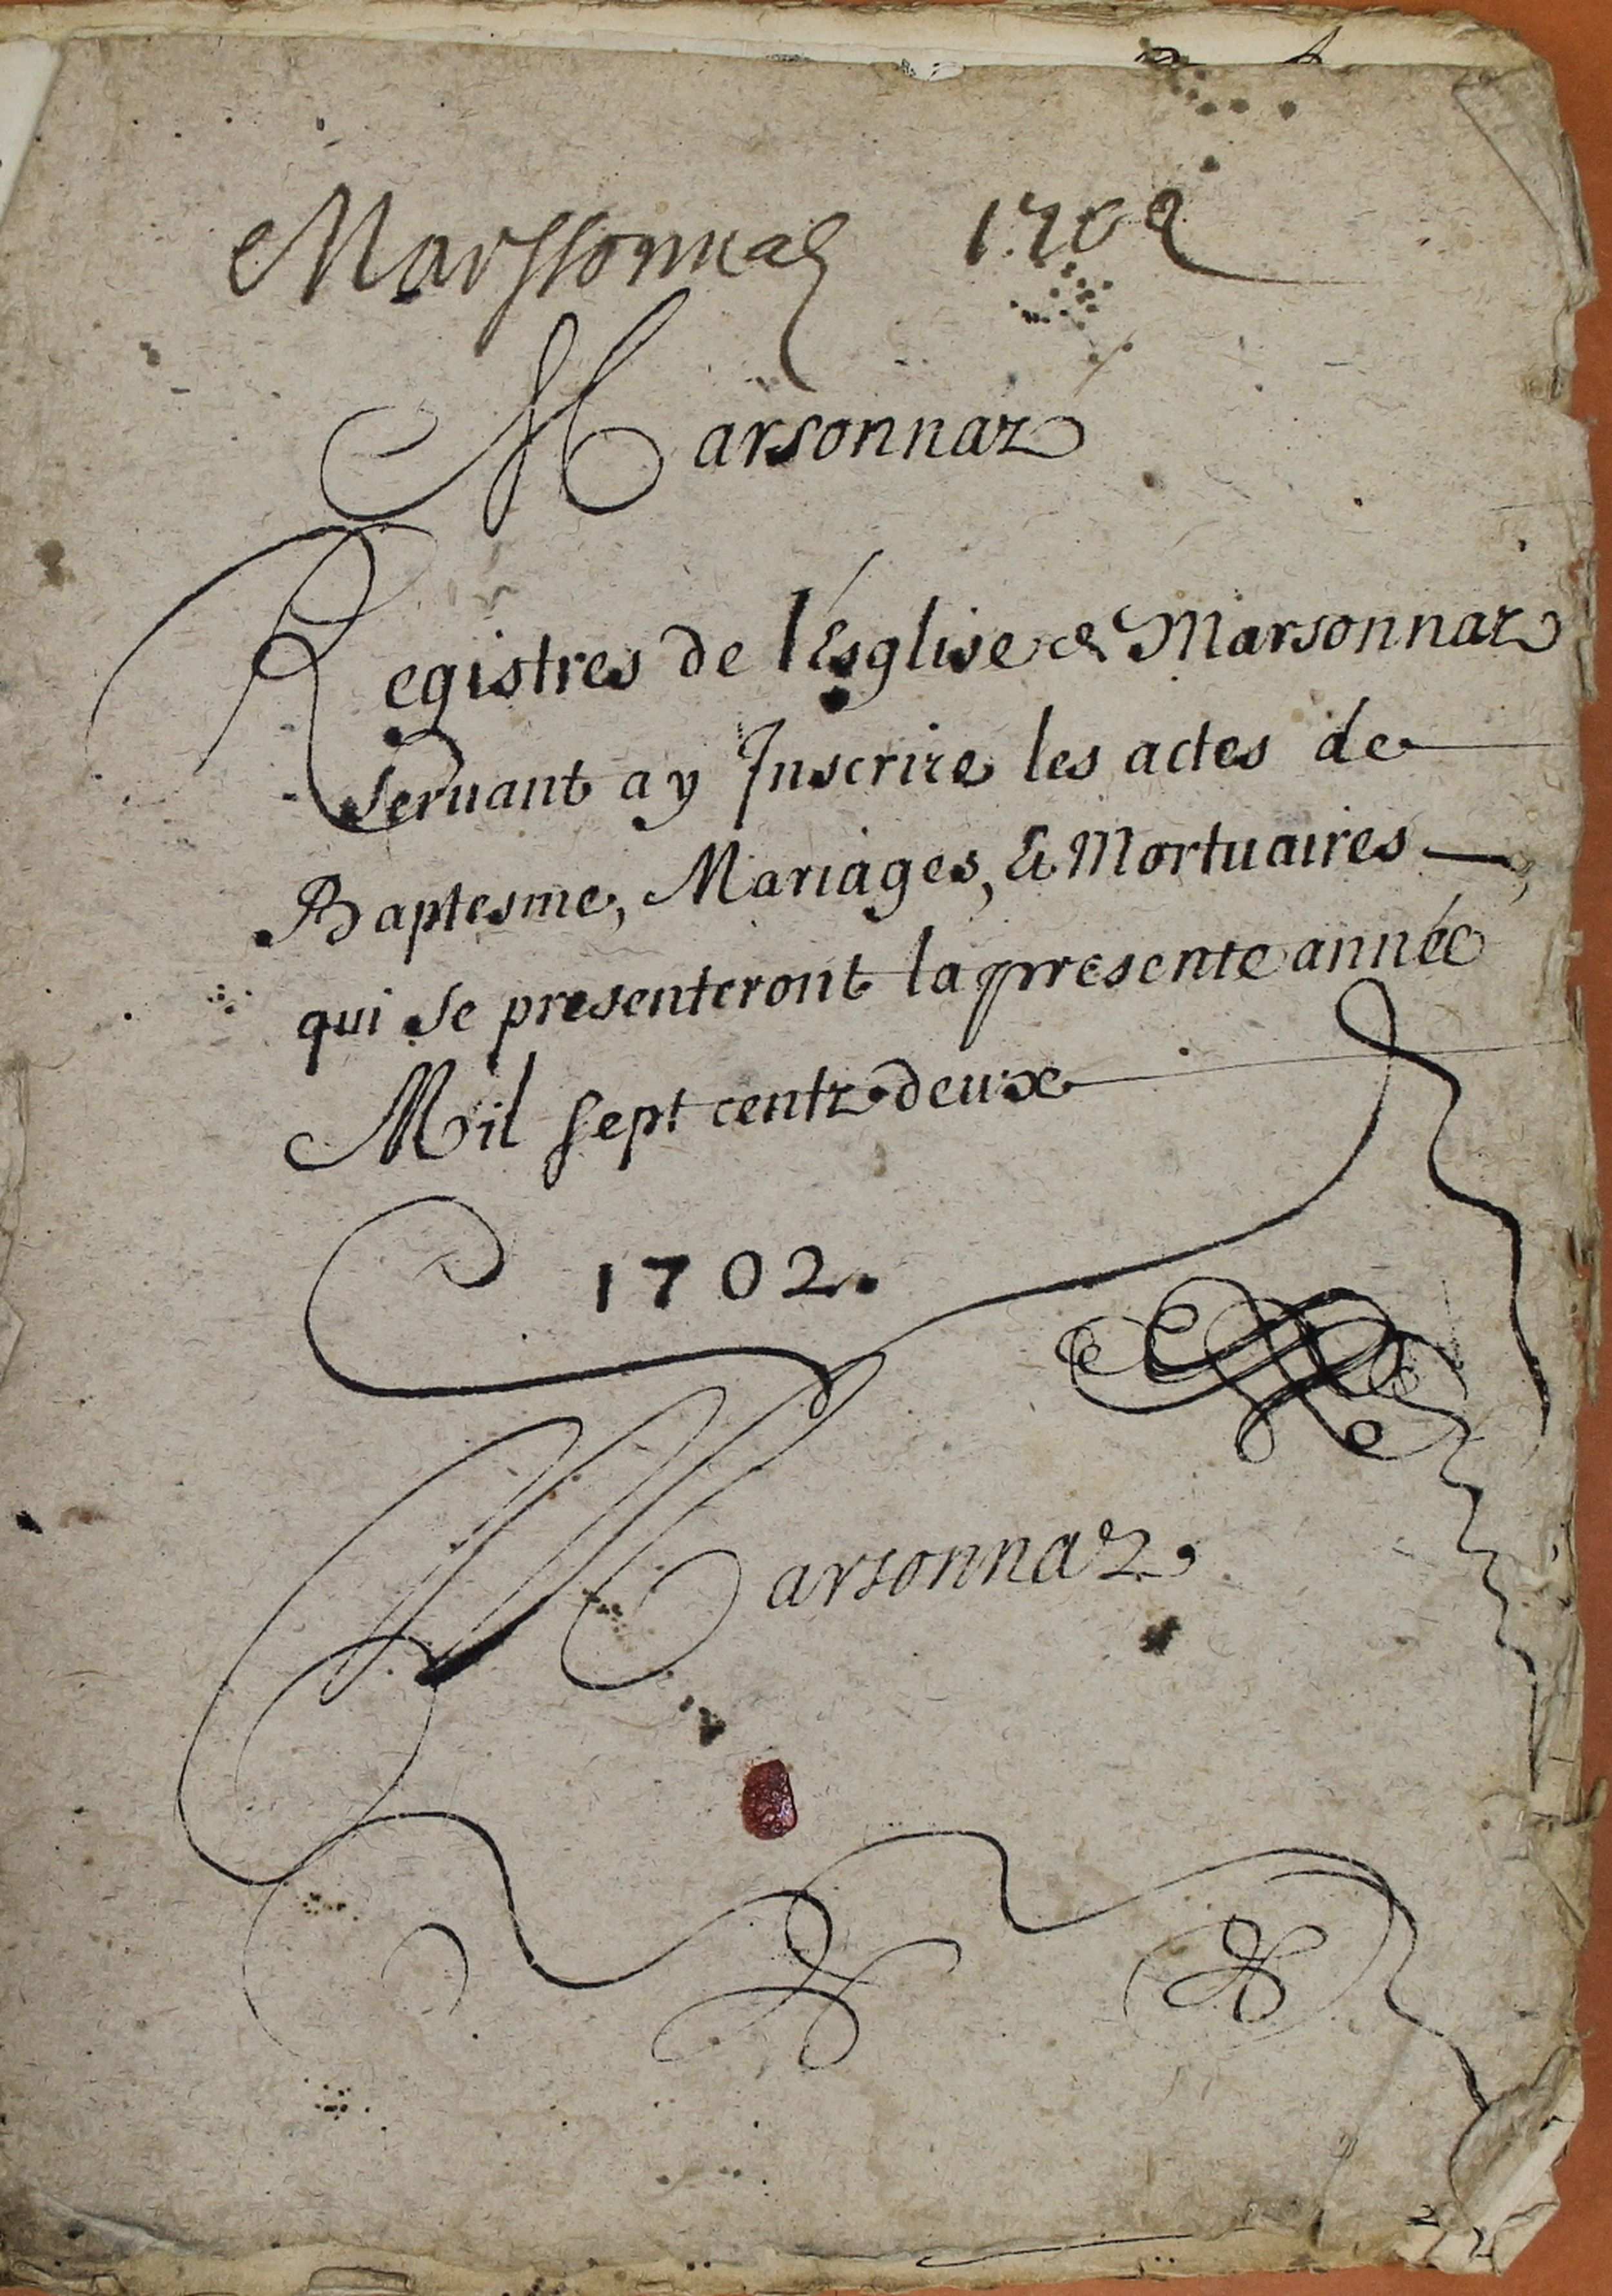 Marssonnas 1702
Marsonnaz
Registres de l'Esglise de Marsonnaz
servant a y Inscrire les actes de
Baptesme, Mariages, & Mortuaires
qui se presenteront la presente année
Mil sept centz deux
1702.
Marsonnaz,